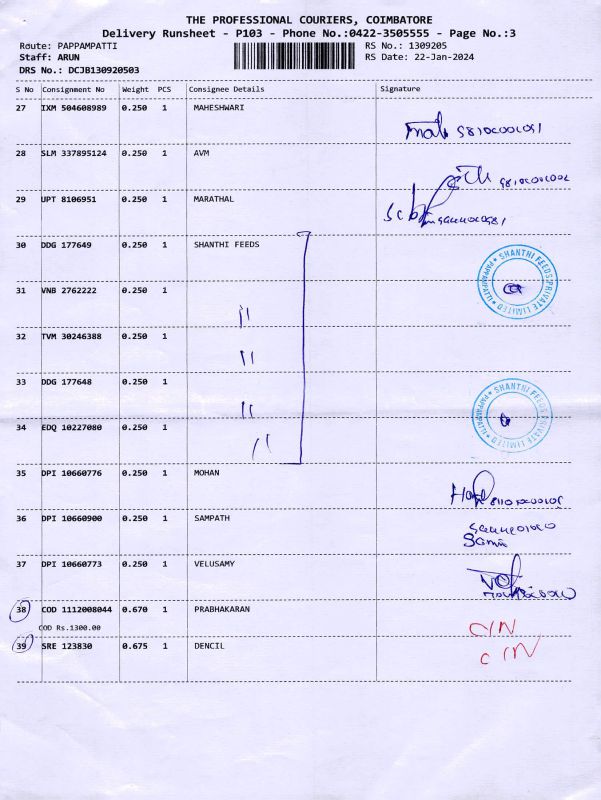 THE PROFESSIONAL COURIERS, COIMBATORE
Delivery Runsheet - P103 - Phone No.:0422-3505555 - Page No.:3
Route: PAPPAMPATTI RS No.: 1309205
Staff: ARUN RS Date: 22-Jan-2024
DRS No.: DCJB130920503
S No Consignment No Weight PCS Consignee Details Signature
27 IXM 504608989 0.250 1 MAHESHWARI
28 SLM 337895124 0.250 1 AVM
29 UPT 8106951 0.250 1 MARATHAL
30 DDG 177649 0.250 1 SHANTHI FEEDS
SHANTHI FEEDS PRIVATE LIMITED * PAPPAMPATTI *
31 VNB 2762222 0.250 1
"
32 TVM 30246388 0.250 1
"
33 DDG 177648 0.250 1
"
SHANTHI FEEDS PRIVATE LIMITED * PAPPAMPATTI *
34 EDQ 10227080 0.250 1
"
35 DPI 10660776 0.250 1 MOHAN
36 DPI 10660900 0.250 1 SAMPATH
37 DPI 10660773 0.250 1 VELUSAMY
38 COD 1112008044 0.670 1 PRABHAKARAN
COD Rs.1300.00 C/N
39 SRE 123830 0.675 1 DENCIL C/N